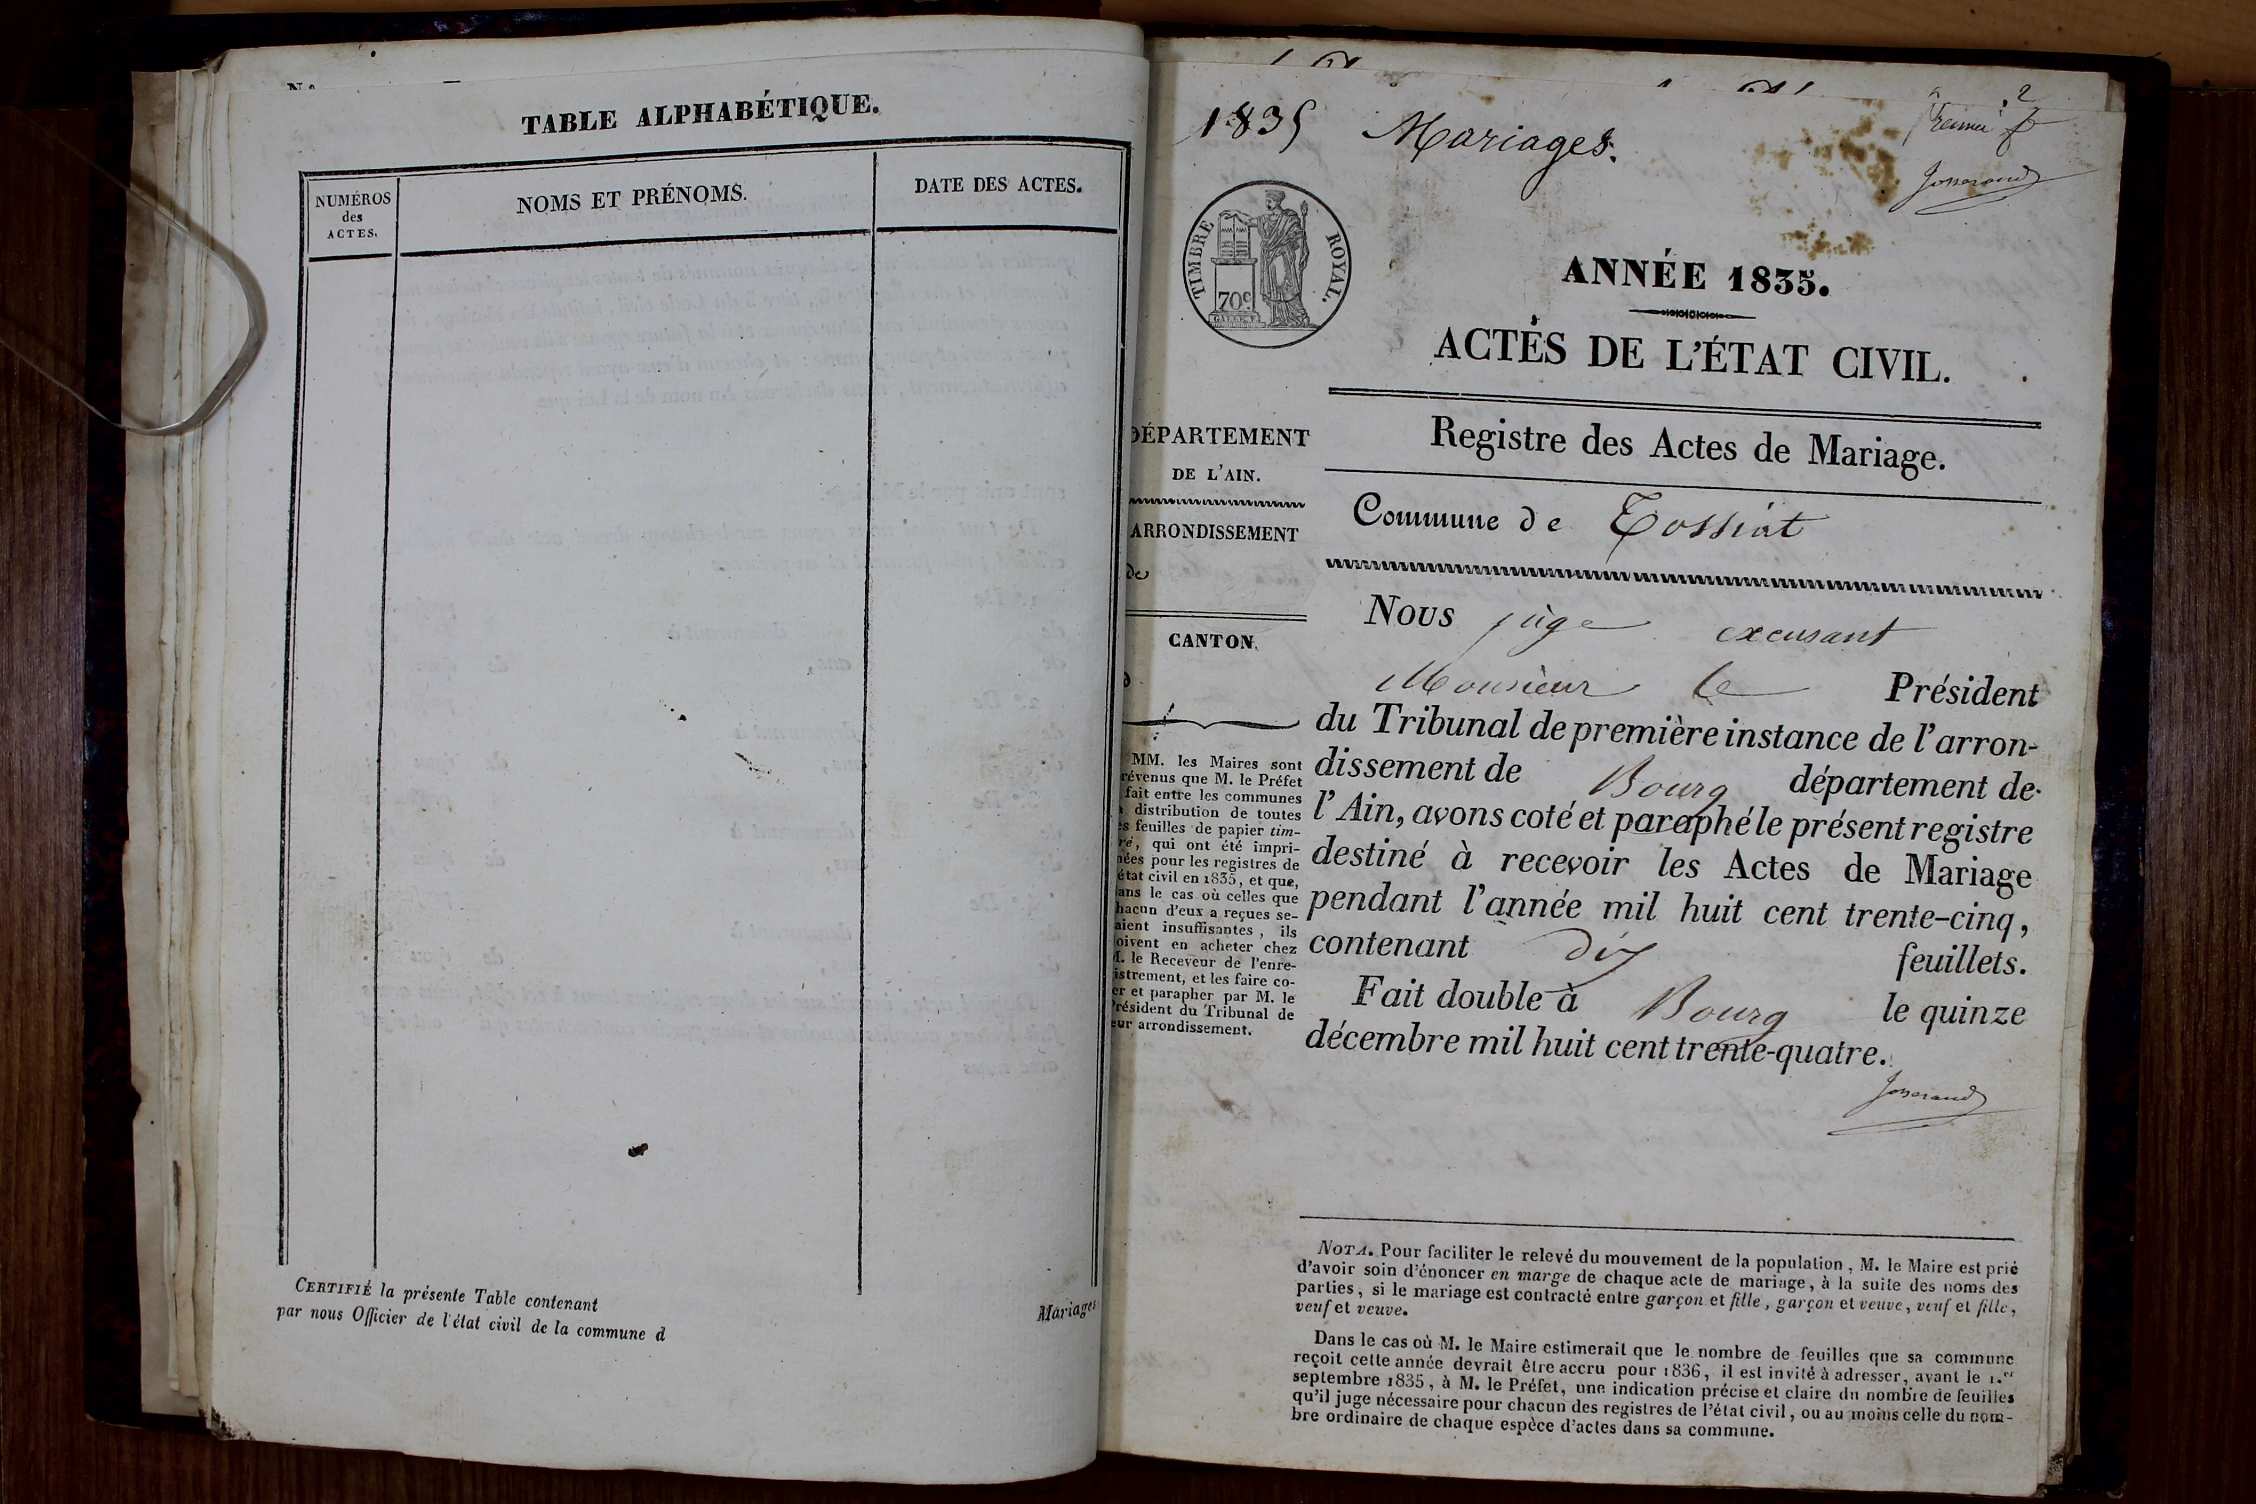 TABLE ALPHABÉTIQUE.
NUMÉROS
des
ACTES.
NOMS ET PRÉNOMS.
DATE DES ACTES.
CERTIFIÉ la présente Table contenant
par nous Officier de l'état civil de la commune d
Mariages
1835 Mariages.
Josserand
TIMBRE ROYAL.
70c.
ANNÉE 1835.
ACTES DE L'ÉTAT CIVIL.
DÉPARTEMENT
DE L'AIN.
ARRONDISSEMENT
de
CANTON
d
MM. les Maires sont
révenus que M. le Préfet
fait entre les communes
distribution de toutes
es feuilles de papier tim-
ré, qui ont été impri-
mées pour les registres de
état civil en 1835, et que,
ans le cas où celles que
hacun d'eux a reçues se-
aient insuffisantes, ils
oivent en acheter chez
M. le Receveur de l'enre-
istrement, et les faire co-
er et parapher par M. le
Président du Tribunal de
eur arrondissement.
Registre des Actes de Mariage.
Commune de Tossiat
Nous juge excusant
Monsieur le Président
du Tribunal de première instance de l'arron-
dissement de Bourg département de
l'Ain, avons coté et paraphé le présent registre
destiné à recevoir les Actes de Mariage
pendant l'année mil huit cent trente-cinq,
contenant dix feuillets.
Fait double à Bourg le quinze
décembre mil huit cent trente-quatre.
Josserand
NOTA. Pour faciliter le relevé du mouvement de la population, M. le Maire est prié
d'avoir soin d'énoncer en marge de chaque acte de mariage, à la suite des noms des
parties, si le mariage est contracté entre garçon et fille, garçon et veuve, veuf et fille,
veuf et veuve.
Dans le cas où M. le Maire estimerait que le nombre de feuilles que sa commune
reçoit cette année devrait être accru pour 1836, il est invité à adresser, avant le 1.er
septembre 1835, à M. le Préfet, une indication précise et claire du nombre de feuilles
qu'il juge nécessaire pour chacun des registres de l'état civil, ou au moins celle du nom-
bre ordinaire de chaque espèce d'actes dans sa commune.